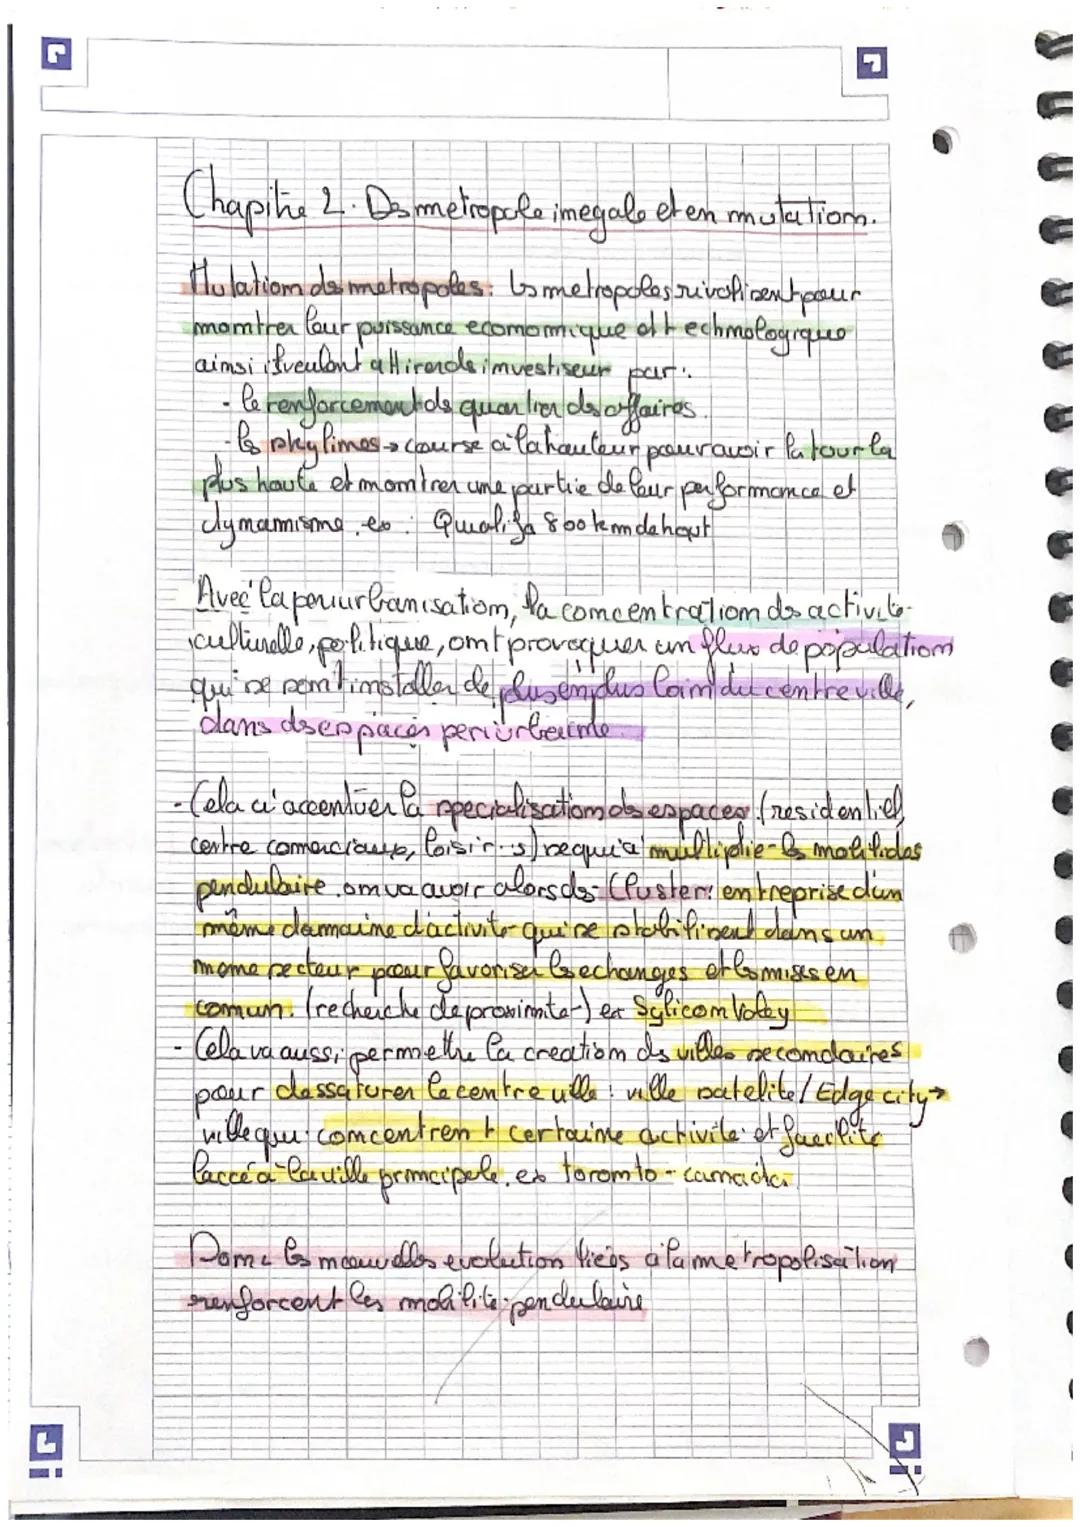 Chapitre 2. Des metropole inegale et en mutation.
Mutation des metropoles: les metropoles rivalisent pour
montrer leur puissance economique et technologique
ainsi veulent attirer des investiseur par:
- le renforcement des quartier des affaires.
- les skylines → course à la hauteur pour avoir la tour la
plus haute et montrer une partie de leur performance et
dynamisme. ex: 800 km de haut
Avec la periurbanisation, la concentration des activité
culturelle, politique, ont provoquer un flux de population
qui se sont installer de plus en plus loin du centre ville,
dans des espaces periurbaine.
- Cela a accentuer la specialisation des espaces (residentiel,
centre comerciaux, loisirs) ce qui a multiplie les mobilités
pendulaire. on va avoir alors des Cluster: entreprise d'un
même domaine d'activité qui se stabilisent dans un
meme secteur pour favoriser les echanges et les mises en
comun. (recherche de proximité) ex Sylicon Valey
- Cela va aussi permettre la creation des villes secondaires
pour dessaturer le centre ville: ville satelite/Edge city →
ville qui concentrent certaine activité et facilite
l'accé a la ville principale. ex toronto - canada
Donc les nouvelles evolution liées à la metropolisation
renforcent les mobilité pendulaire